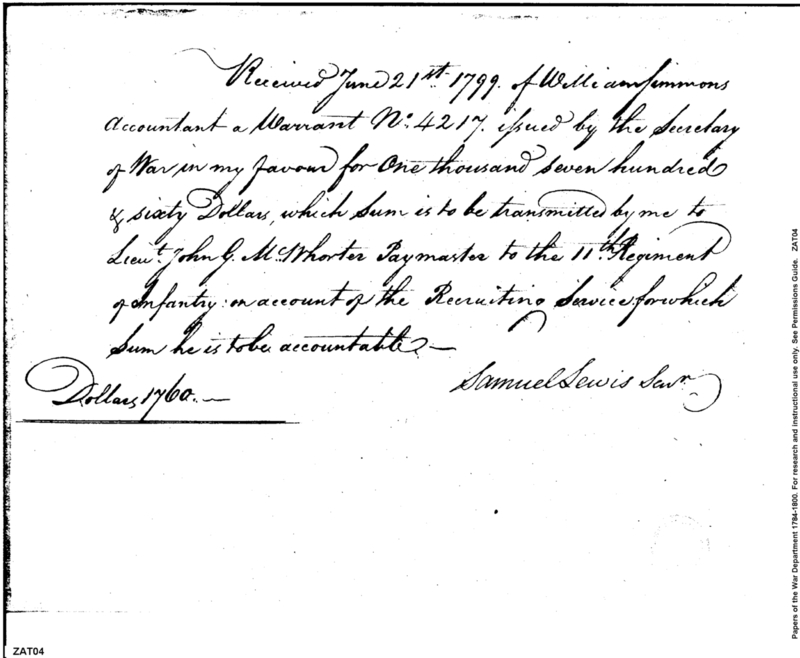 Received June 21st. 1799. of William Simmons
Accountant a Warrant No. 4217. issued by the Secretary
of War in my favour for One thousand seven hundred
& sixty Dollars, which Sum is to be transmitted by me to
Lieut. John G. McWhorter Paymaster to the 11th. Regiment
of Infantry: on account of the Recruiting Service for which
Sum he is to be accountable. —
Samuel Lewis Senr.
Dollars 1760. —
Papers of the War Department 1784-1800. For research and instructional use only. See Permissions Guide. ZAT04
ZAT04